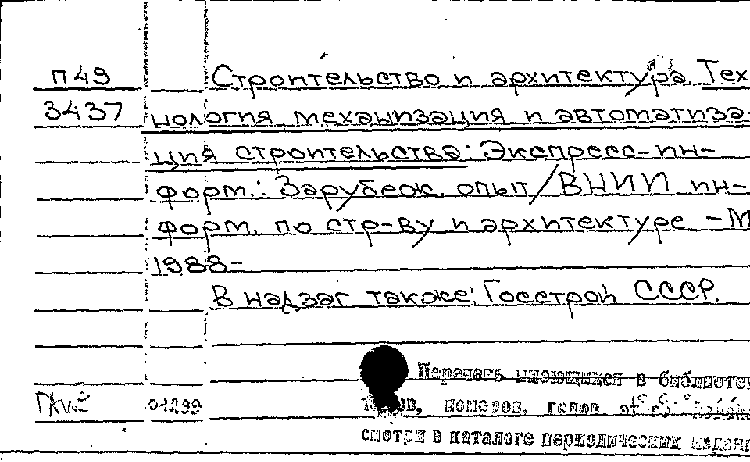 П49 Строительство и архитектура. Тех
3437 нология механизация и автоматиза-
ция строительства: Экспресс-ин-
форм.: Зарубеж. опыт/ВНИИ ин-
форм. по стр-ву и архитектуре – М
1988–
В надзаг также: Госстрой СССР.
Перечень имеющихся в библиотек
томов, номеров, годов
смотри в каталоге периодических издани